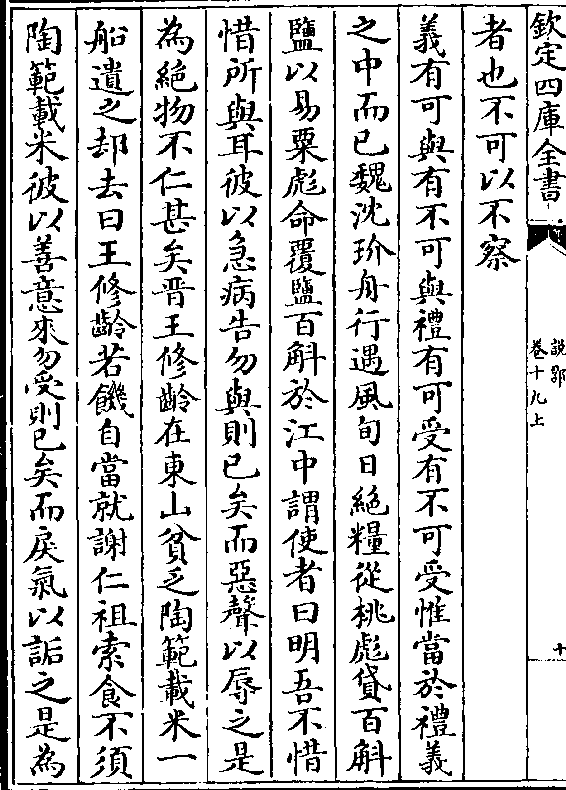 欽定四庫全書
説郛
卷十九上
十
者也不可以不察
義有可與有不可與禮有可受有不可受惟當於禮義
之中而已魏沈玠舟行遇風旬日絶糧從桃彪貸百斛
鹽以易粟彪命覆鹽百斛於江中謂使者曰明吾不惜
惜所與耳彼以急病告勿與則已矣而惡聲以辱之是
為絶物不仁甚矣晋王修齡在東山貧乏陶範載米一
船遺之却去曰王修齡若饑自當就謝仁祖索食不須
陶範載米彼以善意來勿受則已矣而戾氣以詬之是為